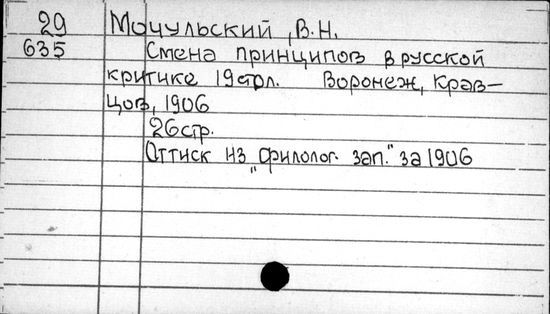 29 Мочульский, В.Н.
635 Смена принципов в русской
критике 19 стол. Воронеж, Крав-
цов, 1906
26 стр.
Оттиск из "Филолог. зап." за 1906